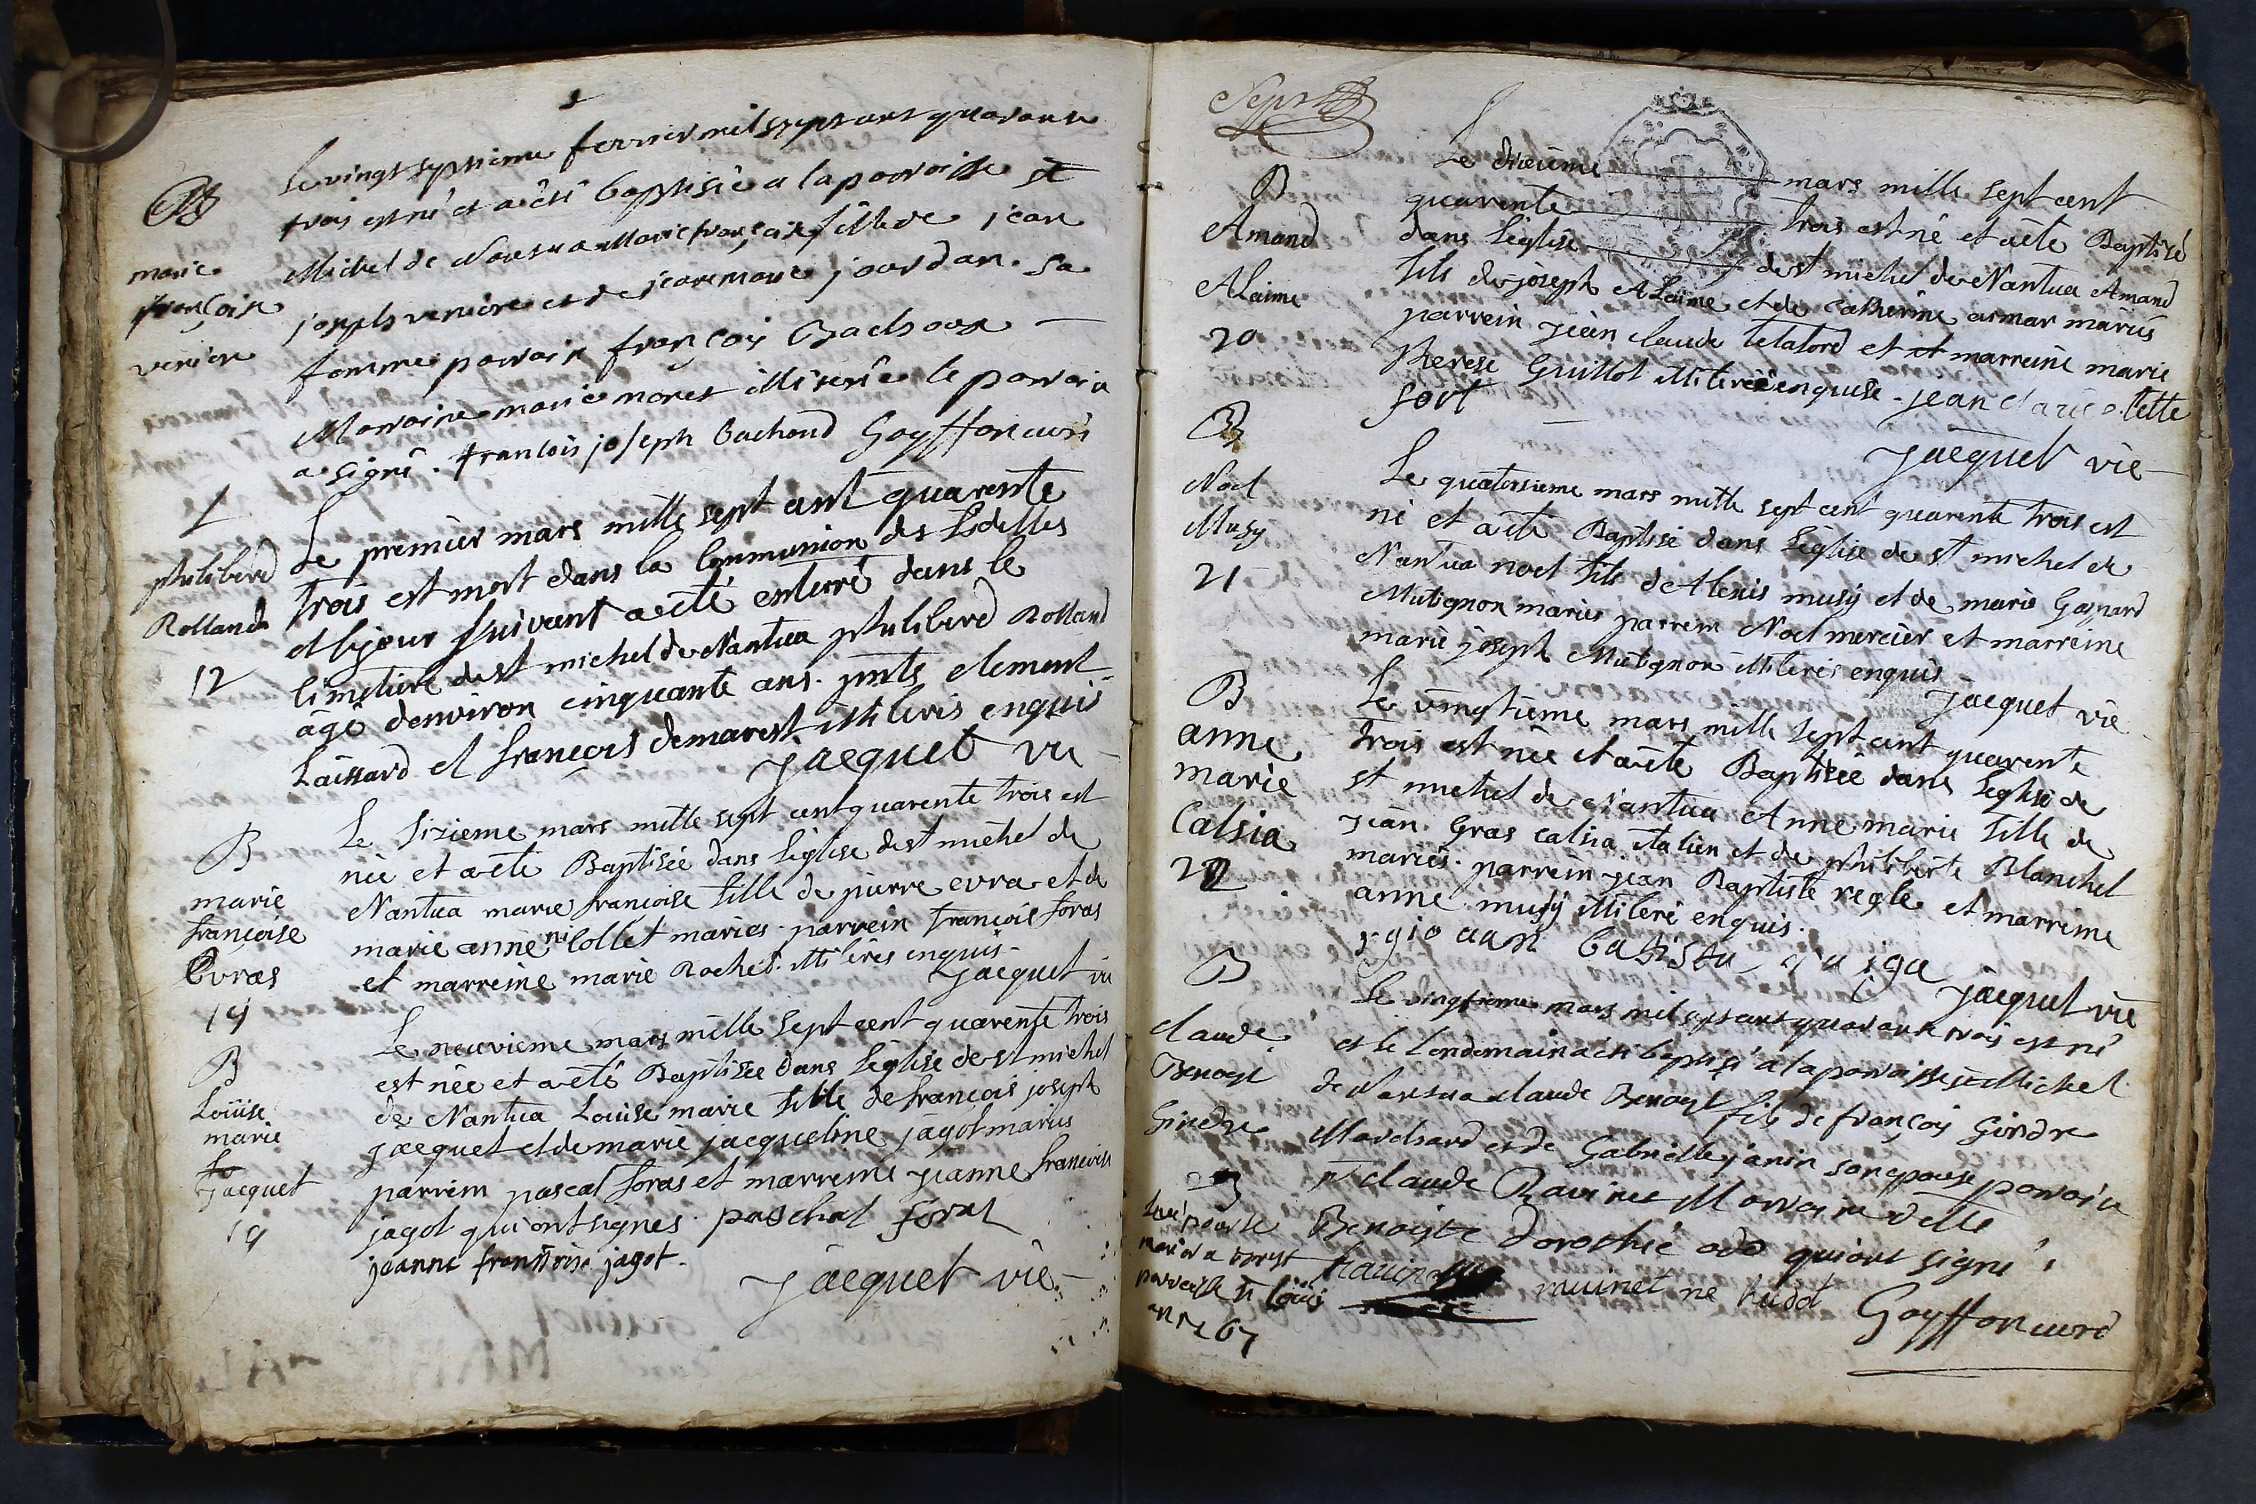 B
marie
françoise
venière
Le vingt septieme fevrier mil sept cent quarante
trois est né et a été baptisée a la paroisse st
Michel de Nantua Marie françoise fille de jean
joseph veniere et de jeanemarie jourdan sa
femme parrain françois Bachoux
Marraine marie moret illiterée le parrain
a signé. francois joseph bachoud Goyffon curé
philiberd
Rolland
12
Le premier mars mille sept cent quarente
trois est mort dans la Communion des fidelles
et le jour suivant a été enterré dans le
cimetiere de st michel de Nantua philiberd Rolland
âgé denviron cinquante ans. pnts clement
Laissard et françois demarest illiteris enquis
jacquet vic
B
marie
françoise
Evras
Le sizieme mars mille sept cent quarente trois est
née et a eté Baptisée dans Léglise de st michel de
Nantua marie francoise fille de pierre evra et de
marie anne collet mariés. parrein françois foras
et marreine marie Rochet. illiterés enquis.
jacquet vic
19
B
Loüise
marie
jacquet
19
Le neuvieme mars mille sept cent quarente trois
est née et a eté Baptisée dans Léglise de st michel
de Nantua Loüise marie fille de françois joseph
jacquet et de marie jacqueline jagot mariés
parrein pascal foras et marreine jeanne francoise
jagot qui ont signes. paschal foras
jeanne fransoise jagot.
jacquet vic
Sept
B
Amand
ALaime
20
Le dixieme mars mille sept cent
quarente trois est né et a ete Baptisé
dans Leglise de st michel de Nantua Amand
fils de joseph ALaime et de catherine armar mariés
parrein jean claude tetaford et marreine marie
therese Guittot illiterée enquise. jean claude tette
fort
jacquet vic
B
Noel
Musy
21
Le quatorsieme mars mille sept cent quarente trois est
né et a été Baptisé dans Léglise de st michel de
Nantua noel fils de Alexis musy et de marie Gaspard
Mutignon mariés parrein Noel mercier et marreine
marie joseph Mutignon illiterés enquis
jacquet vic
B
anne
marie
Calsia
22
Le vingtieme mars mille sept cent quarente
trois est née et a eté Baptisée dans Leglise de
st michel de Nantua Anne marie fille de
jean Gras calsia italien et de philiberte Blanchet
mariés. parrein jean Baptiste regle et marreine
anne musy illiteré enquis.
gio uan batista
jacquet vic
B
claude
Benoist
Girodre
Le vingtieme mars mil sept cent quarante trois est né
et le lendemain a été baptisé a la paroisse st Michel
de Nantua claude Benoist fils de françois Girodre
Marchard et de Gabrielle janin son epouse parrain
sr claude Ravinet Marraine dlle
Benoiste Dorothée odo qui ont signé
ravinet muinet ne hudot
Goyffon curé
marier a
paroisse st Louis
an 1767